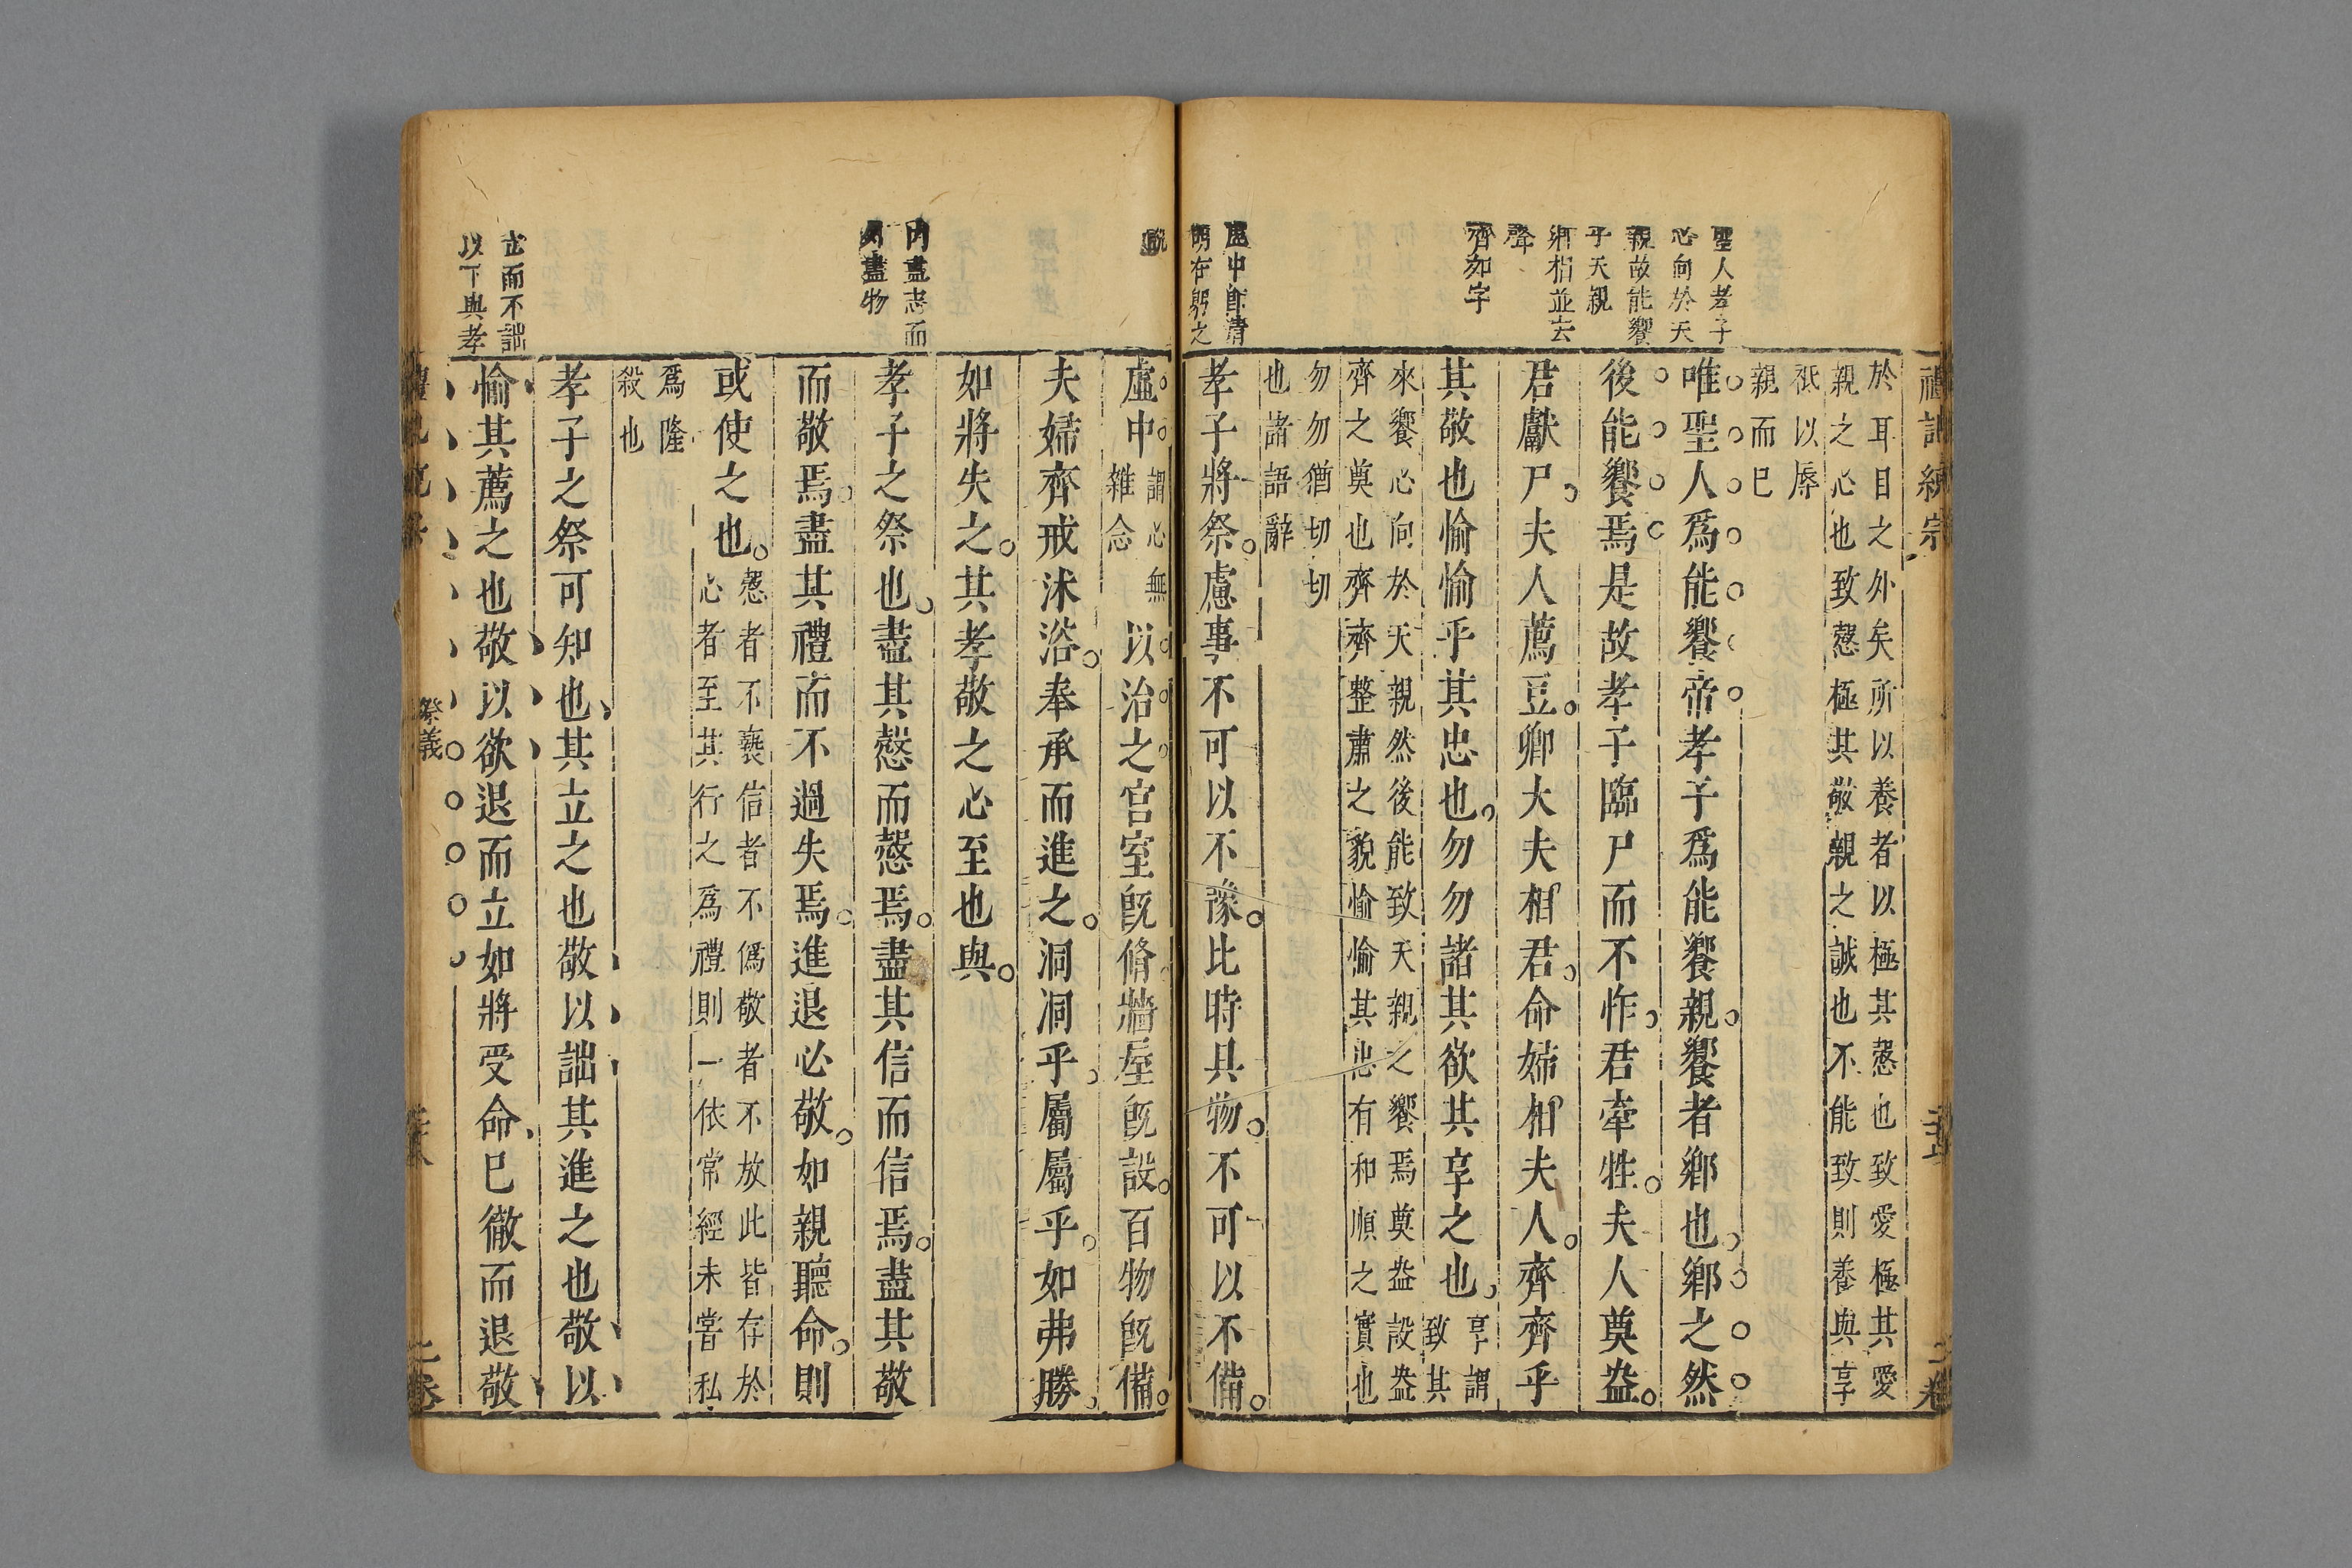 聖人孝子
心向於天
親故能饗
乎天親
鄉相並去
聲
齊如字
虛中卽清
明在躬之
於耳目之外矣所以養者以極其慤也致愛極其愛
親之心也致慤極其敬親之誠也不能致則養與享
祗以辱
親而已
唯聖人爲能饗帝孝子爲能饗親饗者鄉也鄉之然
後能饗焉是故孝子臨尸而不怍君牽牲夫人奠盎
君獻尸夫人薦豆卿大夫相君命婦相夫人齊齊乎
其敬也愉愉乎其忠也勿勿諸其欲其享之也
享謂
致其
來饗心向於天親然後能致天親之饗焉奠盎設盎
齊之奠也齊齊整肅之貌愉愉其忠有和順之實也
勿勿猶切切
也諸語辭
孝子將祭慮事不可以不豫比時具物不可以不備
內盡志而
外盡物
立而不詘
以下與孝
虛中
謂心無
雜念
以治之宮室旣脩牆屋旣設百物旣備
夫婦齊戒沐浴奉承而進之洞洞乎屬屬乎如弗勝
如將失之其孝敬之心至也與
孝子之祭也盡其慤而慤焉盡其信而信焉盡其敬
而敬焉盡其禮而不過失焉進退必敬如親聽命則
或使之也
慤者不褻信者不僞敬者不放此皆存於
心者至其行之爲禮則一依常經未嘗私
爲隆
殺也
孝子之祭可知也其立之也敬以詘其進之也敬以
愉其薦之也敬以欲退而立如將受命已徹而退敬
祭義